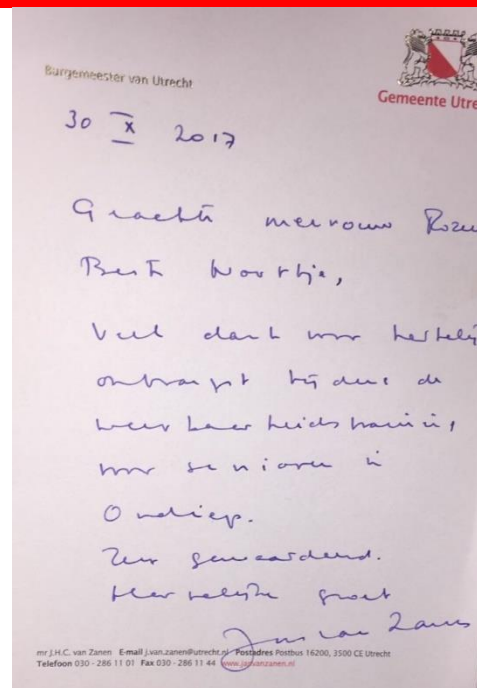 Burgemeester van Utrecht
Gemeente Utre
30 X 2017
Geachte mevrouw Roze
Beste Noortje,
Veel dank voor hartelij
ontvangst tijdens de
weerbaarheidstraining
voor senioren in
Ondiep.
Zeer gewaardeerd.
Hartelijke groet
Jan van Zanen
mr J.H.C. van Zanen E-mail j.van.zanen@utrecht.nl Postadres Postbus 16200, 3500 CE Utrecht
Telefoon 030 - 286 11 01 Fax 030 - 286 11 44 www.janvanzanen.nl